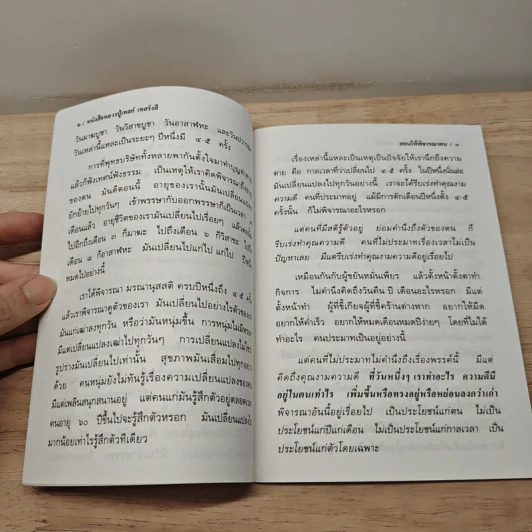 ๒ / หนังสือหลวงปู่เทสก์ เทสรังสี
วันมาฆบูชา วันวิสาขบูชา วันอาสาฬหะ และวันปวารณา
วันเหล่านี้แหละเป็นระยะๆ ปีหนึ่งมี ๔-๕ ครั้ง
การที่พุทธบริษัททั้งหลายพากันตั้งใจมาทำบุญทำทาน
แล้วก็ฟังเทศน์ฟังธรรม เป็นเหตุให้เราคิดพิจารณาถึงอายุ
ของตน มันคืดอนนี้ อายุของเรานั้นมันเปลี่ยนแปลง
ยักย้ายไปทุกวันๆ เข้าพรรษากับออกพรรษาก็เป็นเวลา ๓
เดือนแล้ว อายุชีวิตของเรามันเปลี่ยนไปเรื่อยๆ แล้วต่อ
ไปอีกถึงเดือน ๓ ก็มาฆะ ไปถึงเดือน ๖ ก็วิสาขะ ถึง
เดือน ๘ ก็อาสาฬหะ มันเปลี่ยนไปแก่ไป แก่ไป ปีหนึ่ง
หมดไปอย่างนี้
เราได้พิจารณา มรณานุสสติ ครบปีหนึ่งถึง ๔-๕ ครั้ง
แล้วเราพิจารณาดูตัวของเรา มันเปลี่ยนไปอย่างไรตัวของเรา
มันแก่เฒ่าลงทุกวัน หรือว่ามันหนุ่มขึ้น การหนุ่มไม่มีหรอก
มีแต่เปลี่ยนแปลงเฒ่าไปทุกวันๆ การเปลี่ยนแปลงไม่ใช่
รูปร่างมันเปลี่ยนไปเท่านั้น สุขภาพมันเสื่อมไปทุกอย่าง
ด้วย คนหนุ่มยังไม่ทันรู้เรื่องความเปลี่ยนแปลงของตน
มีแต่เพลินสนุกสนานอยู่ แต่คนแก่มันรู้สึกตัวอยู่ตลอดเวลา
คนอายุ ๖๐ ปีขึ้นไปจะรู้สึกตัวหรอก มันเปลี่ยนแปลงไป
มากน้อยเท่าไรรู้สึกตัวทีเดียว
สอนให้พิจารณาตน / ๓
เรื่องเหล่านี้แหละเป็นเหตุเป็นปัจจัยให้เรานึกถึงความ
ตาย คือ กาลเวลาที่ว่าเปลี่ยนไป ๔-๕ ครั้ง ในปีหนึ่งนั่นละ
มันเปลี่ยนแปลงไปทุกวันอย่างนี้ เราจะได้รีบเร่งทำคุณงาม
ความดี คนที่ประมาทอยู่ แม้มีการตักเตือนปีหนึ่งตั้ง ๔-๕
ครั้งนั้น ก็ไม่พิจารณาอะไรหรอก
แต่คนที่มีสติรู้ตัวอยู่ ย่อมคำนึงถึงตัวของตน ก็
รีบเร่งทำคุณความดี คนที่ไม่ประมาทเรื่องเวลาไม่เป็น
ปัญหาเลย มีแต่รีบเร่งทำคุณงามความดีอยู่เรื่อยไป
เหมือนกันกับผู้ขยันหมั่นเพียร แล้วตั้งหน้าตั้งตาทำ
กิจการ ไม่คำนึงถึงวันคืน ปี เดือนอะไรหรอก มีแต่
ตั้งหน้าทำ ผู้ที่ขี้เกียจผู้ที่ขี้คร้านต่างหาก อยากให้มืด
อยากให้ค่ำเร็ว อยากให้หมดเดือนหมดปีง่ายๆ โดยที่ไม่ได้
ทำอะไร คนประมาทเป็นอยู่อย่างนี้
แต่คนที่ไม่ประมาทไม่คำนึงถึงเรื่องพรรค์นี้ มีแต่
คิดถึงคุณงามความดี ที่วันหนึ่งๆ เราทำอะไร ความดีมี
อยู่ในตนเท่าไร เพิ่มขึ้นหรือทรงอยู่หรือหย่อนลงกว่าเก่า
พิจารณาอันนี้อยู่เรื่อยไป เป็นประโยชน์แก่ตน ไม่เป็น
ประโยชน์แก่ปีแก่เดือน ไม่เป็นประโยชน์แก่กาลเวลา เป็น
ประโยชน์แก่ตัวโดยเฉพาะ